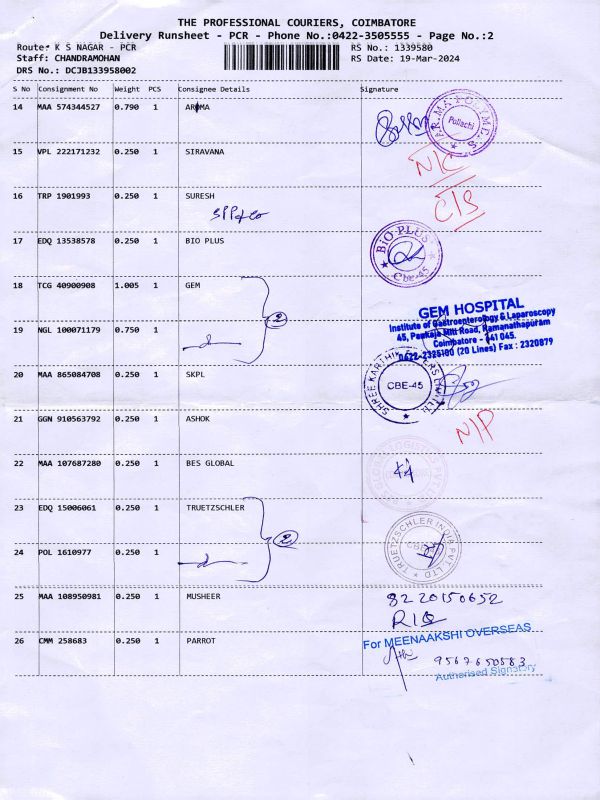 THE PROFESSIONAL COURIERS, COIMBATORE
Delivery Runsheet - PCR - Phone No.:0422-3505555 - Page No.:2
Route: K S NAGAR - PCR RS No.: 1339580
Staff: CHANDRAMOHAN RS Date: 19-Mar-2024
DRS No.: DCJB133958002
S No Consignment No Weight PCS Consignee Details Signature
14 MAA 574344527 0.790 1 AROMA
Pollachi
15 VPL 222171232 0.250 1 SIRAVANA N/C
16 TRP 1901993 0.250 1 SURESH C/S
17 EDQ 13538578 0.250 1 BIO PLUS
BIO PLUS
Cbe-45
18 TCG 40900908 1.005 1 GEM
2
GEM HOSPITAL
Institute of Gastroenterology & Laparoscopy
45, Pankaja Mill Road, Ramanathapuram
Coimbatore - 641 045.
0422-2325100 (20 Lines) Fax : 2320879
19 NGL 100071179 0.750 1
20 MAA 865084708 0.250 1 SKPL
CBE-45
21 GGN 910563792 0.250 1 ASHOK N/P
22 MAA 107687280 0.250 1 BES GLOBAL
23 EDQ 15006061 0.250 1 TRUETZSCHLER
2
TRUETZSCHLER INDIA PVT. LTD
24 POL 1610977 0.250 1
25 MAA 108950981 0.250 1 MUSHEER 8220150652
26 CMM 258683 0.250 1 PARROT
For MEENAAKSHI OVERSEAS
9567650583
Authorised Signatory